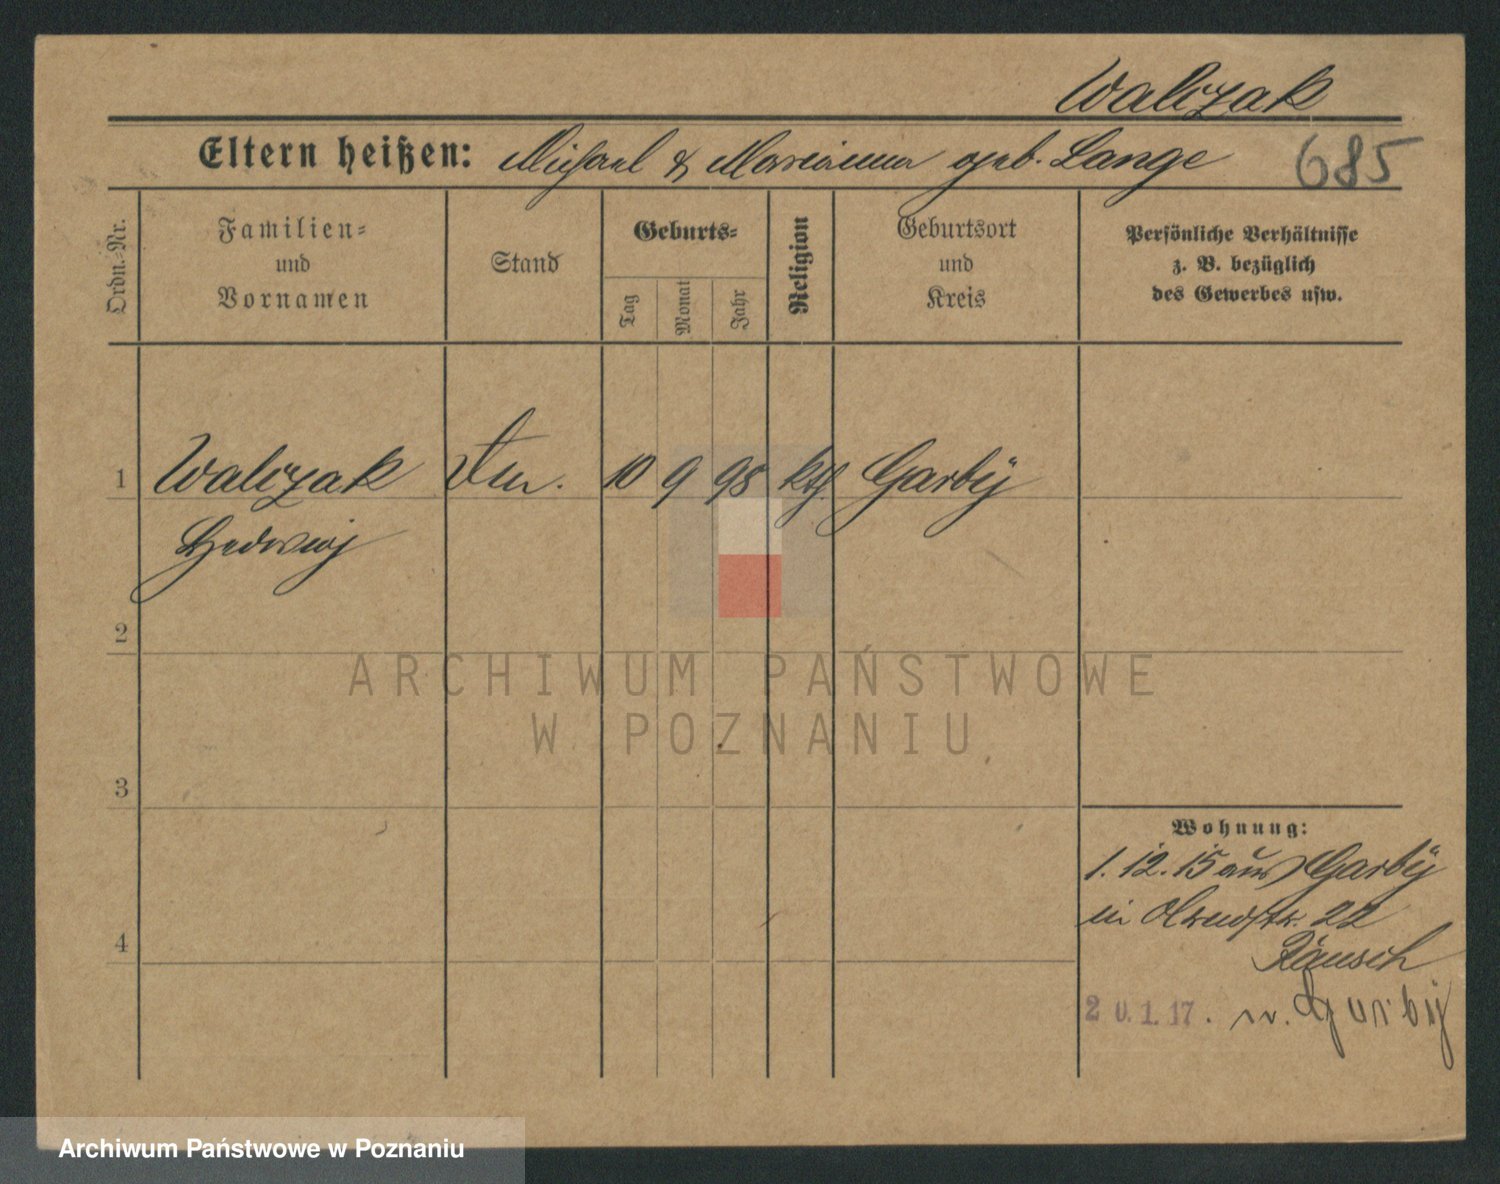 Walczak
Eltern heißen: Michael & Marianna geb. Lange
685
Ordn.-Nr.
Familien-
und
Vornamen
Stand
Geburts-
Tag
Monat
Jahr
Religion
Geburtsort
und
Kreis
Persönliche Verhältnisse
z. B. bezüglich
des Gewerbes usw.
1 Walczak 10 9 98 kth. Garby
Hedwig
2
3
4
ARCHIWUM PAŃSTWOWE
W POZNANIU
Wohnung:
1. 12. 15 aus Garby
in 22
Räusch
20.1.17. n. Garby
Archiwum Państwowe w Poznaniu